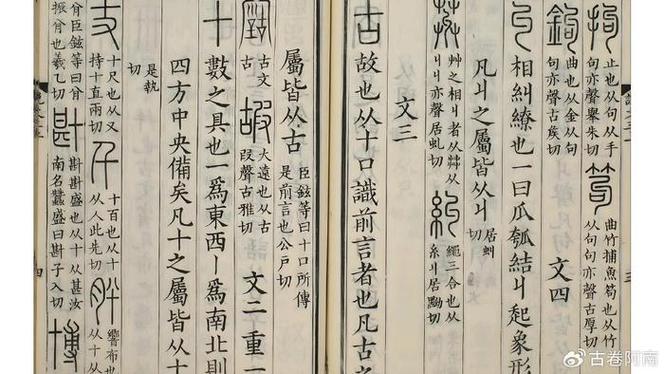 拘 止也从句从手
句亦聲舉朱切
笱 曲竹捕魚笱也从竹
从句句亦聲古厚切
鉤 曲也从金从句
句亦聲古矦切 文四
丩 相糾繚也一曰瓜瓠結丩起象形
凡丩之屬皆从丩 居虯
切
艸之相丩者从茻从
丩丩亦聲居虯切
糾 繩三合也从
糸丩居黝切
文三
古 故也从十口識前言者也凡古之
屬皆从古 臣鉉等曰十口所傳
是前言也公戶切
古文
古
嘏 大遠也从古
叚聲古雅切 文二 重一
十 數之具也一爲東西丨爲南北則
四方中央備矣凡十之屬皆从十
是執
切
丈 十尺也从又
持十直兩切
千 十百也从十
从人此先切
肸 響布也
从十从
臣鉉等曰
振 也羲乙切
卙 卙卙盛也从十从甚汝
南名蠶盛曰卙子入切
博
古卷阿南